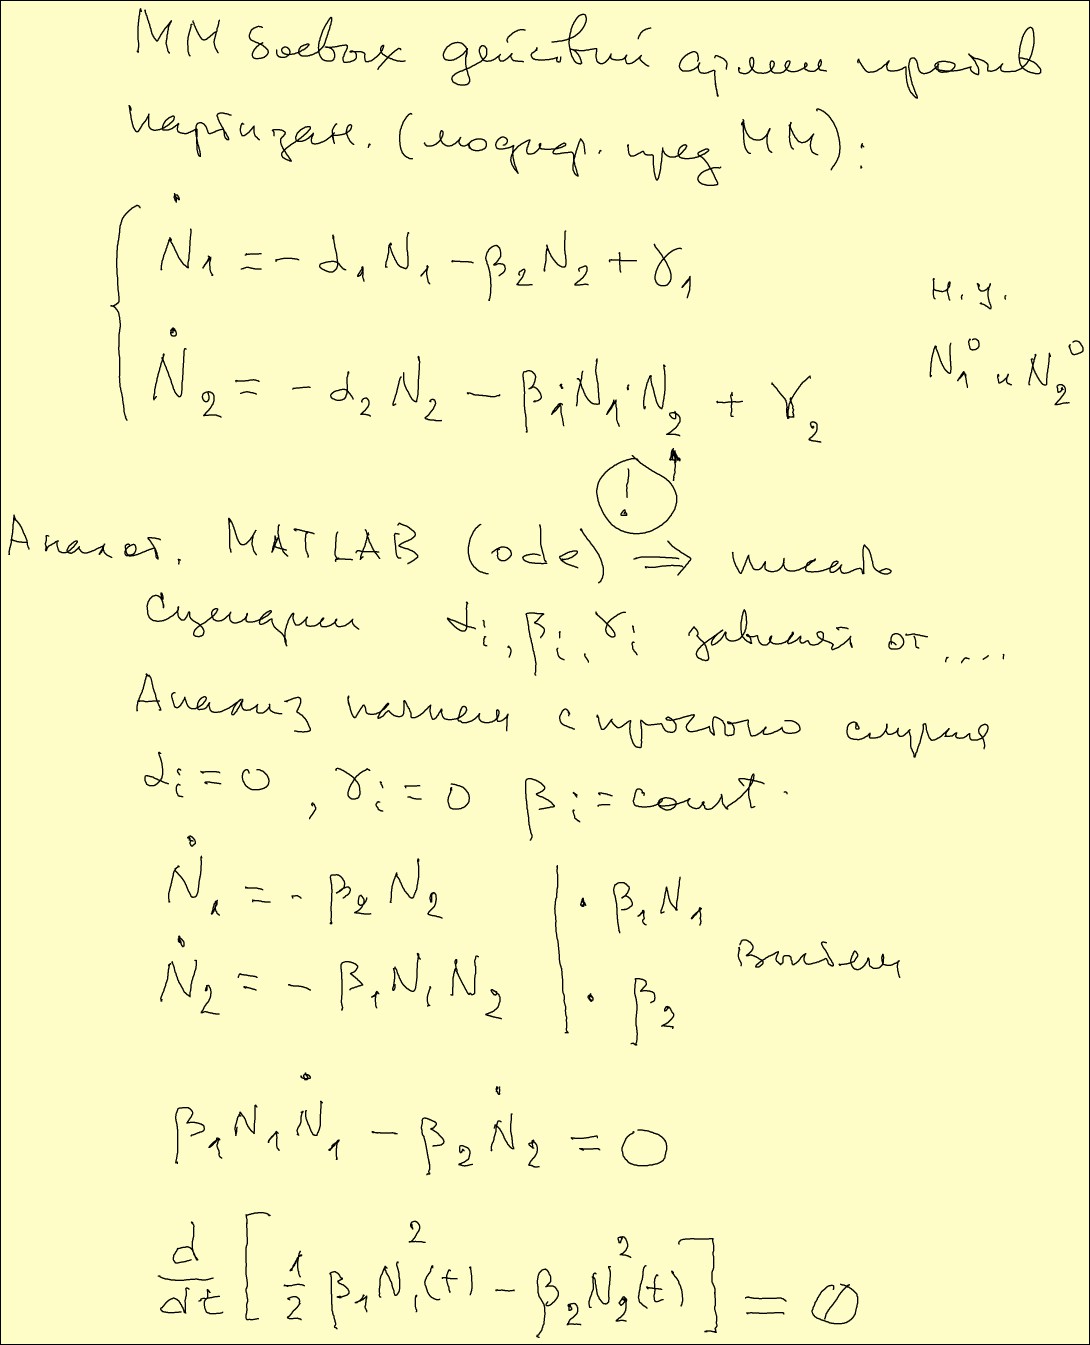 ММ боевых действий армии против
партизан. (модиф. пред ММ):
Ṅ₁ = - α₁ N₁ - β₂ N₂ + γ₁
н.у.
Ṅ₂ = - α₂ N₂ - β₁·N₁·N₂ + γ₂
N₁⁰ и N₂⁰
!
Аналог. MATLAB (ode) ⇒ писать
сценарии αᵢ, βᵢ, γᵢ зависят от ....
Анализ начнем с простого случая
αᵢ = 0, γᵢ = 0 βᵢ = const.
Ṅ₁ = - β₂ N₂ | · β₁ N₁
Вычтем
Ṅ₂ = - β₁ N₁ N₂ | · β₂
β₁ N₁ Ṅ₁ - β₂ Ṅ₂ = 0
d/dt [ 1/2 β₁ N₁²(t) - β₂ N₂²(t) ] = 0